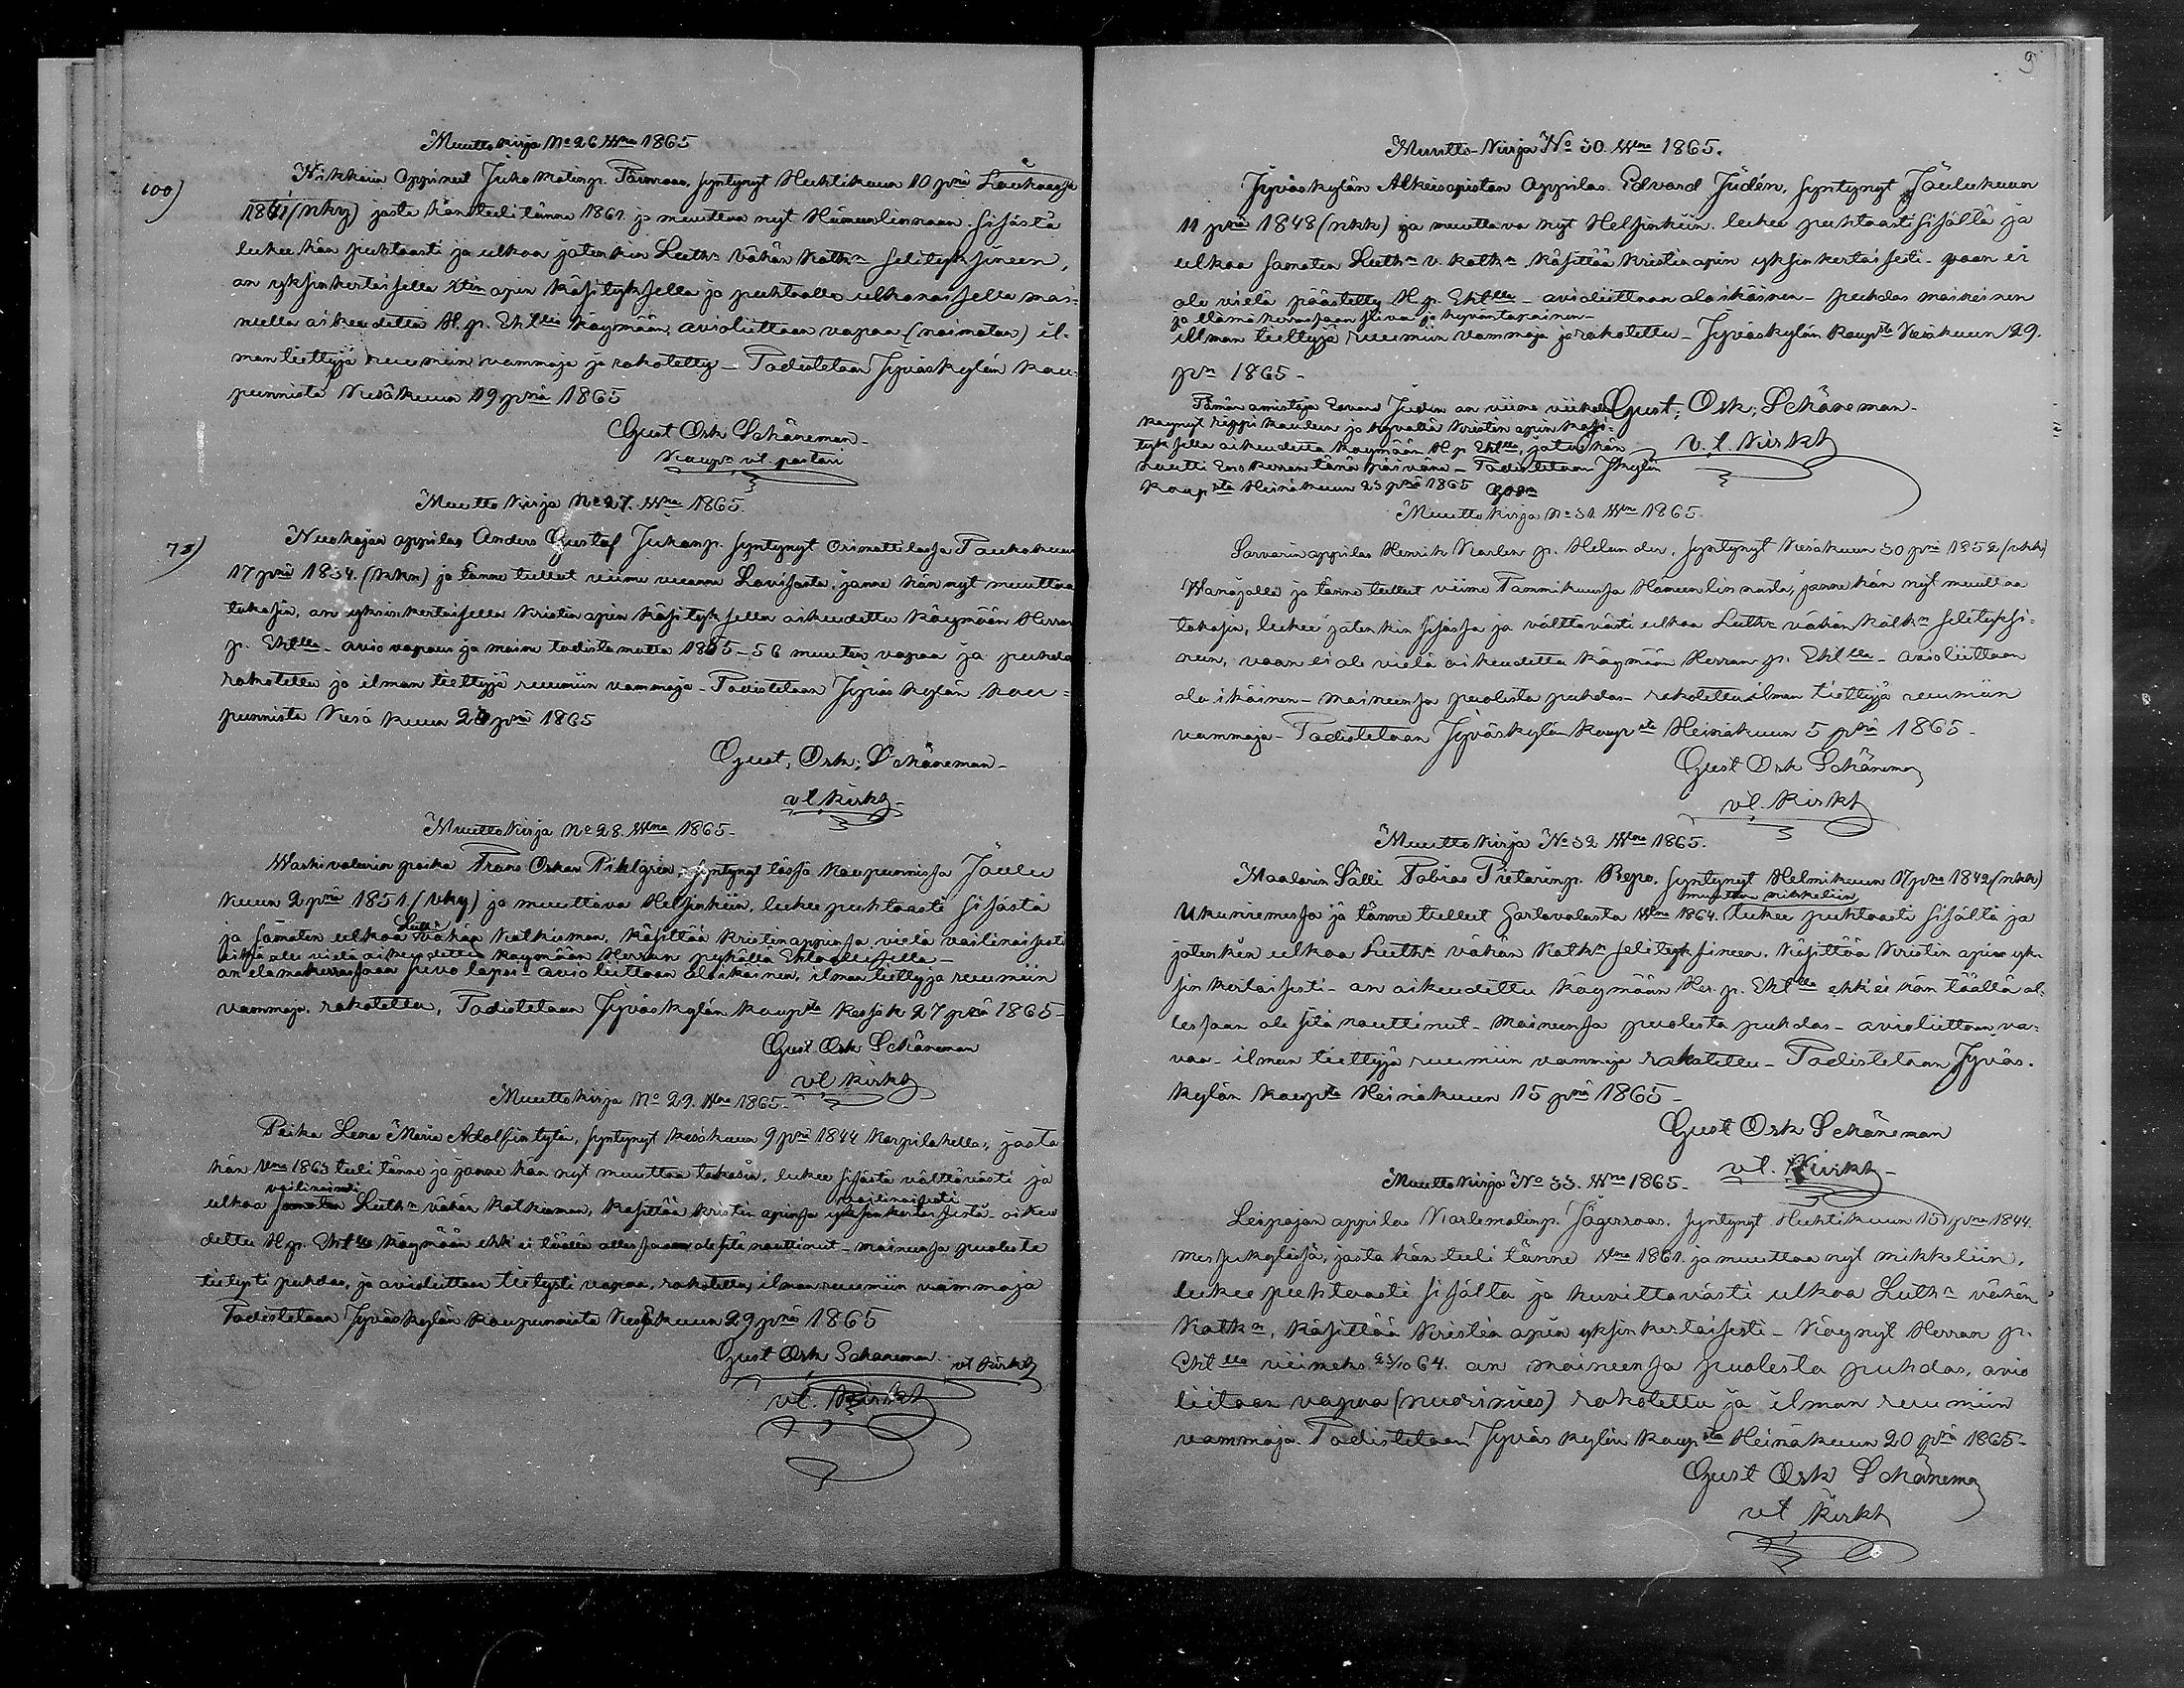 Muuttokirja No 26 Wna 1865
100) Nikkarin oppinut Juho Matinp. Tamroos, syntynyt Huhtikuun 10 pnä Laukaassa
1841 (nky) josta hän tuli tänne 1861. ja muuttaa nyt Hämeenlinnaan. sisästä
lukee hän puhtaasti ja ulkoa jotenkin Luthn vähän Kathn selityksineen,
on yksinkertaisella Xtin opin käsityksellä ja puhtaalla ulkonaisella mai-
neella oikeudettu H.p. Ehtlle käymään, avioliittoon vapaa (naimaton) il-
man tiettyjä ruumiin vammoja ja rokotettu _ Todistetaan Jyväskylän kau-
pungista Kesäkuun 19 pnä 1865
Gust Osk Schöneman _
Kaupn vl. pastori
Muutto kirja No 27. Wna 1865.
78) Nuohojan oppilas Anders Gustaf Juhonp. syntynyt Orimattilassa Toukokuun
17 pnä 1834. (kkn) ja tänne tullut viime vuonna Lovisasta, jonne hän nyt muuttaa
takasin, on yksinkertaisella kristin opin käsityksellä oikeudettu käymään Herran
p. Ehtlla _ avio vapaus ja maine todistamatta 1855_56 muuten vapaa ja puhdas
rokotettu ja ilman tiettyjä ruumiin vammoja _ Todistetaan Jyväskylän kau-
pungista Kesä kuun 20 pnä 1865
Gust, Osk; Schöneman _
vl kirkh _
Muutto kirja No 28. Wna 1865 _
Waskivalurin poika Frans Oskar Pihlgren, syntynyt tässä Kaupungissa Joulu
kuun 2 pnä 1851. (vky) ja muuttava Helsinkiin, lukee puhtaasti sisästä
ja samaten ulkoa Luthn vähän Katkisman, käsittää kristinoppinsa vielä vaillinaisesti
eikä ole vielä oikeudettu käymään Herran pyhällä Ehtoollisella _
on elämäkerrassaan siivo lapsi _ avioliittoon alaikäinen, ilman tiettyjä ruumiin
vammoja, rokotettu, Todistetaan Jyväskylän kaupsta Kesäk 27 pnä 1865 _
Gust Osk Schöneman
vl kirkh
Muutto kirja No 29. Wna 1865 _
Piika Lena Maria Adolfintytär, syntynyt kesäkuun 9 pnä 1844 Korpilahella, josta
hän Wna 1863 tuli tänne ja jonne hän nyt muuttaa takasin, lukee sisästä välttävästi ja
vaillinaisesti
ulkoa samaten Luthn vähän katkisman, käsittää kristin opinsa yksinkertaisesti _ oikeu
vaillinaisesti
dettu H.p. Ehtlle käymään ehk ei täällä ollessaan ole sitä nauttinut _ maineensa puolesta
tietysti puhdas, ja avioliittoon tietysti vapaa, rokotettu, ilman ruumiin vammoja
Todistetaan Jyväskylän kaupungista Kesäkuun 29 pnä 1865
Gust Osk Schöneman vl kirkh
vl. kirkh
9
Muutto-Kirja No 30. Wna 1865.
Jyväskylän Alkeisopiston oppilas. Edvard Judén, syntynyt Joulukuun
11 pnä 1848 (nkk) ja muuttava nyt Helsinkiin. lukee puhtaasti sisältä ja
ulkoa samaten Luthn v. kathn, käsittää kristinopin yksinkertaisesti _ vaan ei
ole vielä päästetty H.p. Ehtlle _ avioliittoon alaikäinen _ puhdas maineinen
ja elämäkerrassaan siivo ja hyväntapainen _
illman tiettyjä ruumiin vammoja ja rokotettu _ Jyväskylän Kaupsta Kesäkuun 29.
pn 1865 _
Gust; Osk; Schöneman _
v. l. kirkh
Tämän omistaja Edvard Judén on viime viikolla
käynyt rippikoulun ja hyvällä kristin opin käsi-
tyksellä oikeudettu käymään H.p. Ehtlla, jota hän
nautti Ens kerran tänä päivänä _ Todistetaan Jkylän
Kaupsta Heinäkuun 23 pnä 1865 GOSn
Muutto kirja No 31. Wna 1865.
Sorvarin oppilas Henrik Karlen p. Helander, syntynyt Kesäkuun 30 pnä 1852 (nkk)
Wanajalla ja tänne tullut viime Tammikuussa Hämeenlinnasta, jonne hän nyt muuttaa
takasin, lukee jotenkin sisässä ja välttävästi ulkoa Luthn vähän kathn selityksi-
neen, vaan ei ole vielä oikeudettu käymään Herran p. Ehtlla _ avioliittoon
ala ikäinen _ maineensa puolesta puhdas _ rokotettu ilman tiettyjä ruumiin
vammoja _ Todistetaan Jyväskylän Kaupsta Heinäkuun 5 pnä 1865 _
Gust Osk Schöneman
vl. kirkh
Muutto kirja No 32 Wna 1865.
Maalarin Sälli Tobias Pietarinp. Repo, syntynyt Helmikuun 17 pnä 1842 (nkk)
muuttaa mikkeliin
Ukuniemessä ja tänne tullut Sortavalasta Wna 1864. lukee puhtaasti sisältä ja
jotenkin ulkoa Luthn vähän Kathn selityksineen. Käsittää Kristin opin yk-
sinkertaisesti _ on oikeudettu käymään Her. p. Ehtlla ehk ei hän täällä ol-
lessaan ole sitä nauttinut _ maineensa puolesta puhdas _ avioliittoon va-
vaa _ ilman tiettyjä ruumiin vammoja rokotettu _ Todistetaan Jyväs-
kylän Kaupsta Heinäkuun 15 pnä 1865 _
Gust Osk Schöneman
vl. kirkh _
Muutto kirja No 33. Wna 1865 _
Leipojan oppilas Karle malinp. Jägerroos. syntynyt Huhtikuun 15 pnä 1844.
messukylässä, josta hän tuli tänne Wna 1861. ja muuttaa nyt mikkeliin,
lukee puhtaasti sisältä ja kuvittavasti ulkoa Luthn vähän
Kathn, käsittää Kristin opin yksinkertaisesti _ Käynyt Herran p.
Ehtlla viimeks 23/10 64. on maineensa puolesta puhdas, avio
liitoon vapaa (nuorimies) rokotettu ja ilman ruumiin
vammoja. Todistetaan Jyväskylän Kaupsta Heinäkuun 20 pnä 1865 _
Gust Osk Schöneman
vl kirkh